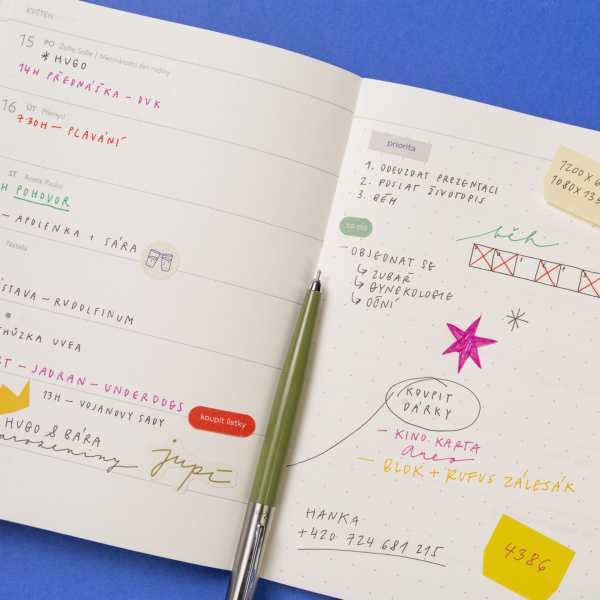 KVĚTEN
15 PO Žofie, Sofie | Mezinárodní den rodiny
* HUGO
14H PŘEDNÁŠKA - DVK
16 ÚT Přemysl
7:30H — PLAVÁNÍ
ST Aneta, Paskal
H POHOVOR
— APOLENKA + SÁRA
Nataša
STAVA — RUDOLFINUM
CHŮZKA UVEA
RT — JADRAN — UNDERDOGS
13H — VOJANOVY SADY
koupit lístky
HUGO & BÁRA
narozeniny
jupí
priorita
1. ODEVZDAT PREZENTACI
2. POSLAT ŽIVOTOPIS
3. BĚH
1200 X 6
1080 X 135
to do
— OBJEDNAT SE
↳ ZUBAŘ
↳ GYNEKOLOGIE
↳ OČNÍ
běh
KOUPIT
DÁRKY
— KINO KARTA
Aero
— BLOK + RUFUS ZÁLESÁK
HANKA
+420 724 681 215
4386